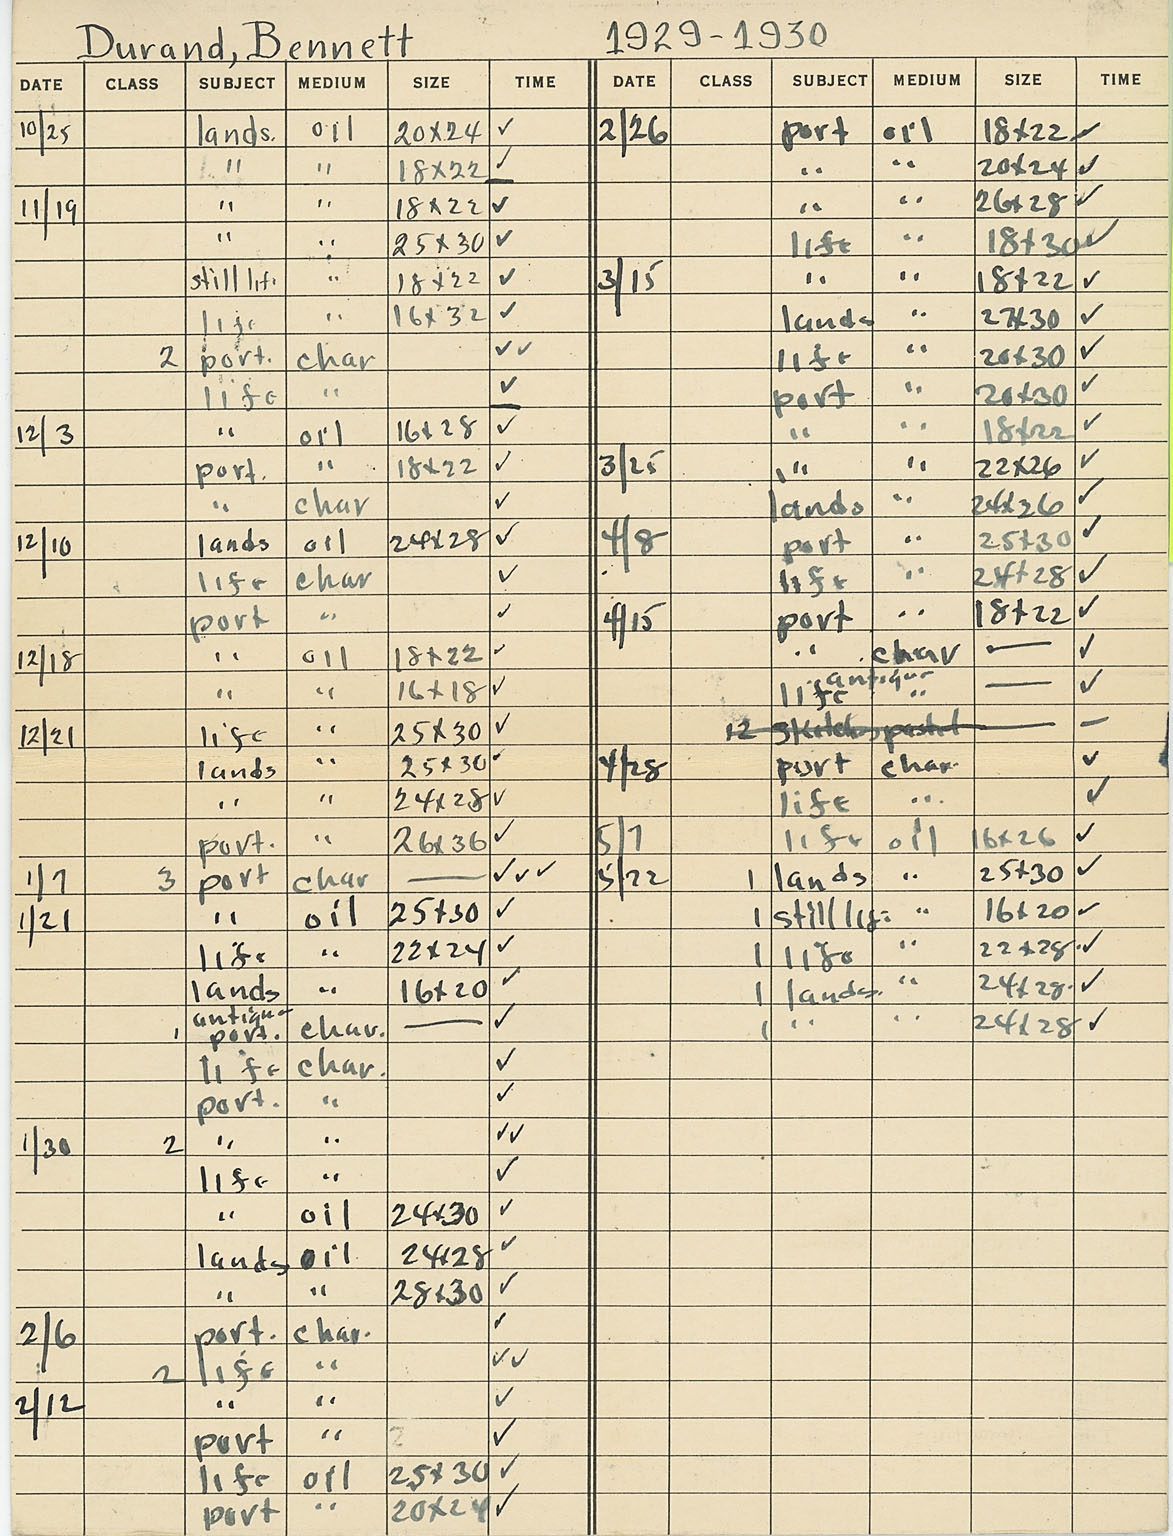 Durand, Bennett 1929-1930
DATE CLASS SUBJECT MEDIUM SIZE TIME
10/25 lands. oil 20x24 ✓
" " 18x22 ✓
11/19 " " 18x22 ✓
" " 25x30 ✓
still lif. " 18x22 ✓
life " 16x32 ✓
2 port. char ✓✓
life " ✓
12/3 " oil 16x28 ✓
port. " 18x22 ✓
" char ✓
12/10 lands oil 24x28 ✓
life char ✓
port " ✓
12/18 " oil 18x22 ✓
" " 16x18 ✓
12/21 life " 25x30 ✓
lands " 25x30 ✓
" " 24x28 ✓
port. " 26x36 ✓
1/7 3 port char — ✓✓✓
1/21 " oil 25x30 ✓
life " 22x24 ✓
lands " 16x20 ✓
antique
1 port. char. — ✓
life char. ✓
port. " ✓
1/30 2 " " ✓✓
life " ✓
" oil 24x30 ✓
lands oil 24x28 ✓
" " 28x30 ✓
2/6 port. char. ✓
2 life " ✓✓
2/12 " " ✓
port " 2 ✓
life oil 25x30 ✓
port " 20x24 ✓
DATE CLASS SUBJECT MEDIUM SIZE TIME
2/26 port oil 18x22 ✓
" " 20x24 ✓
" " 26x28 ✓
life " 18x30 ✓
3/15 " " 18x22 ✓
lands " 27x30 ✓
life " 20x30 ✓
port " 20x30 ✓
" " 18x22
3/25 " " 22x26 ✓
lands " 24x26 ✓
4/8 port " 25x30 ✓
life " 24x28 ✓
4/15 port " 18x22 ✓
" char — ✓
antique
life " — ✓
12 sketches pastel — —
4/28 port char. ✓
life " ✓
5/7 life oil 16x26 ✓
5/22 1 lands " 25x30 ✓
1 still life " 16x20 ✓
1 life " 22x28 ✓
1 lands. " 24x28 ✓
1 " " 24x28 ✓